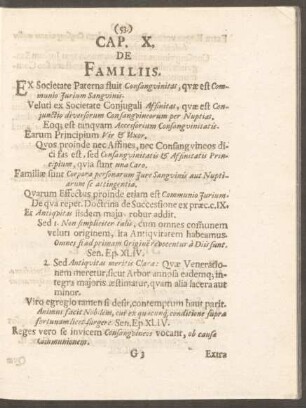 (53)
CAP. X.
DE
FAMILIIS.
EX Societate Paterna fluit Consangvinitas, qvæ est Com-
munio Jurium Sangvinis.
Veluti ex Societate Conjugali Affinitas, qvæ est Con-
junctio diversorum Consangvineorum per Nuptias.
Eoq; est tanqvam Accessorium Consangvinitatis.
Earum Principium Vir & Uxor.
Qvos proinde nec Affines, nec Consangvineos dici
fas est, sed Consangvinitatis & Affinitatis Prin-
cipium, qvia sunt una Caro.
Familiæ sunt Corpora personarum Jure Sangvinis aut Nupti-
arum se attingentia.
Qvarum Effectus proinde etiam est Communio Jurium
De qva repet. Doctrina de Successione ex præc. c. IX.
Et Antiqvitas iisdem majus robur addit.
Sed 1. Non simpliciter talis, cum omnes censum
veluti originem, ita Antiqvitatem habeamus.
Omnes si ad primam Originem revocentur à Diis sunt.
Sen. Ep. XLIV.
2. Sed Antiqvitas meritis Clara: Qvæ Veneratio-
nem meretur, sicut Arbor annosa eademq; in-
tegra majoris æstimatur, qvam alia lacera aut
minor.
Viro egregio tamen si desit, contemptum haut parit.
Animus facit Nobilem, cui ex qvacunq; conditione supra
fortunam licet surgere. Sen. Ep. XLIV.
Reges vero se invicem Consangvineos vocant, ob causæ
Communionem.
G 3 Extra